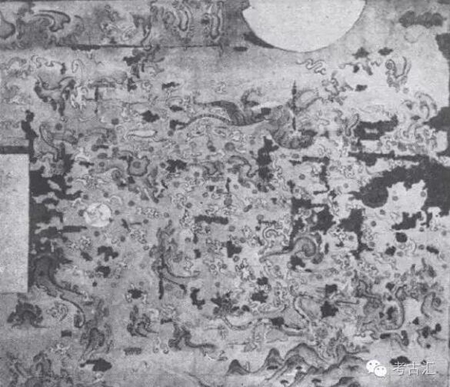 考古汇